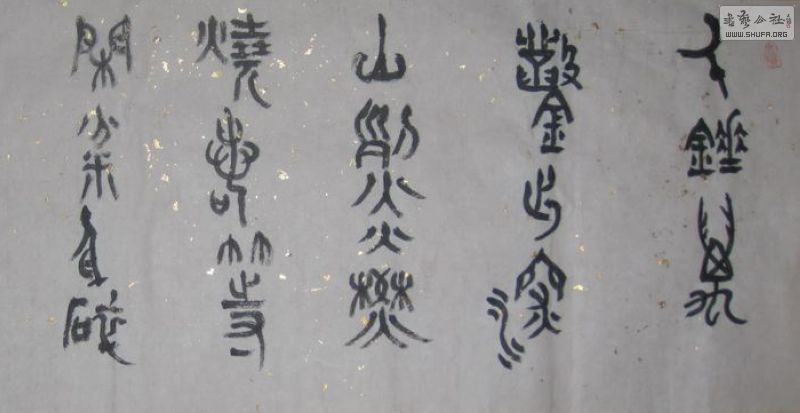 書藝公社
WWW.SHUFA.ORG
千錘萬
鑿出深
山烈火焚
燒若等
閑粉身碎